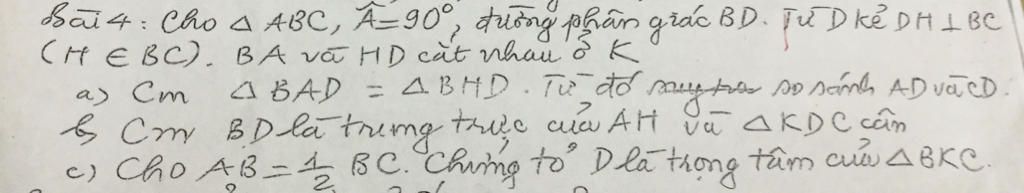 Bài 4: Cho △ ABC, Â = 90°, đường phân giác BD. Từ D kẻ DH ⊥ BC
(H ∈ BC). BA và HD cắt nhau ở K
a) Cm △ BAD = △ BHD. Từ đó so sánh AD và CD.
b) Cm BD là trung trực của AH và △ KDC cân
c) Cho AB = 1/2 BC. Chứng tỏ D là trọng tâm của △ BKC.